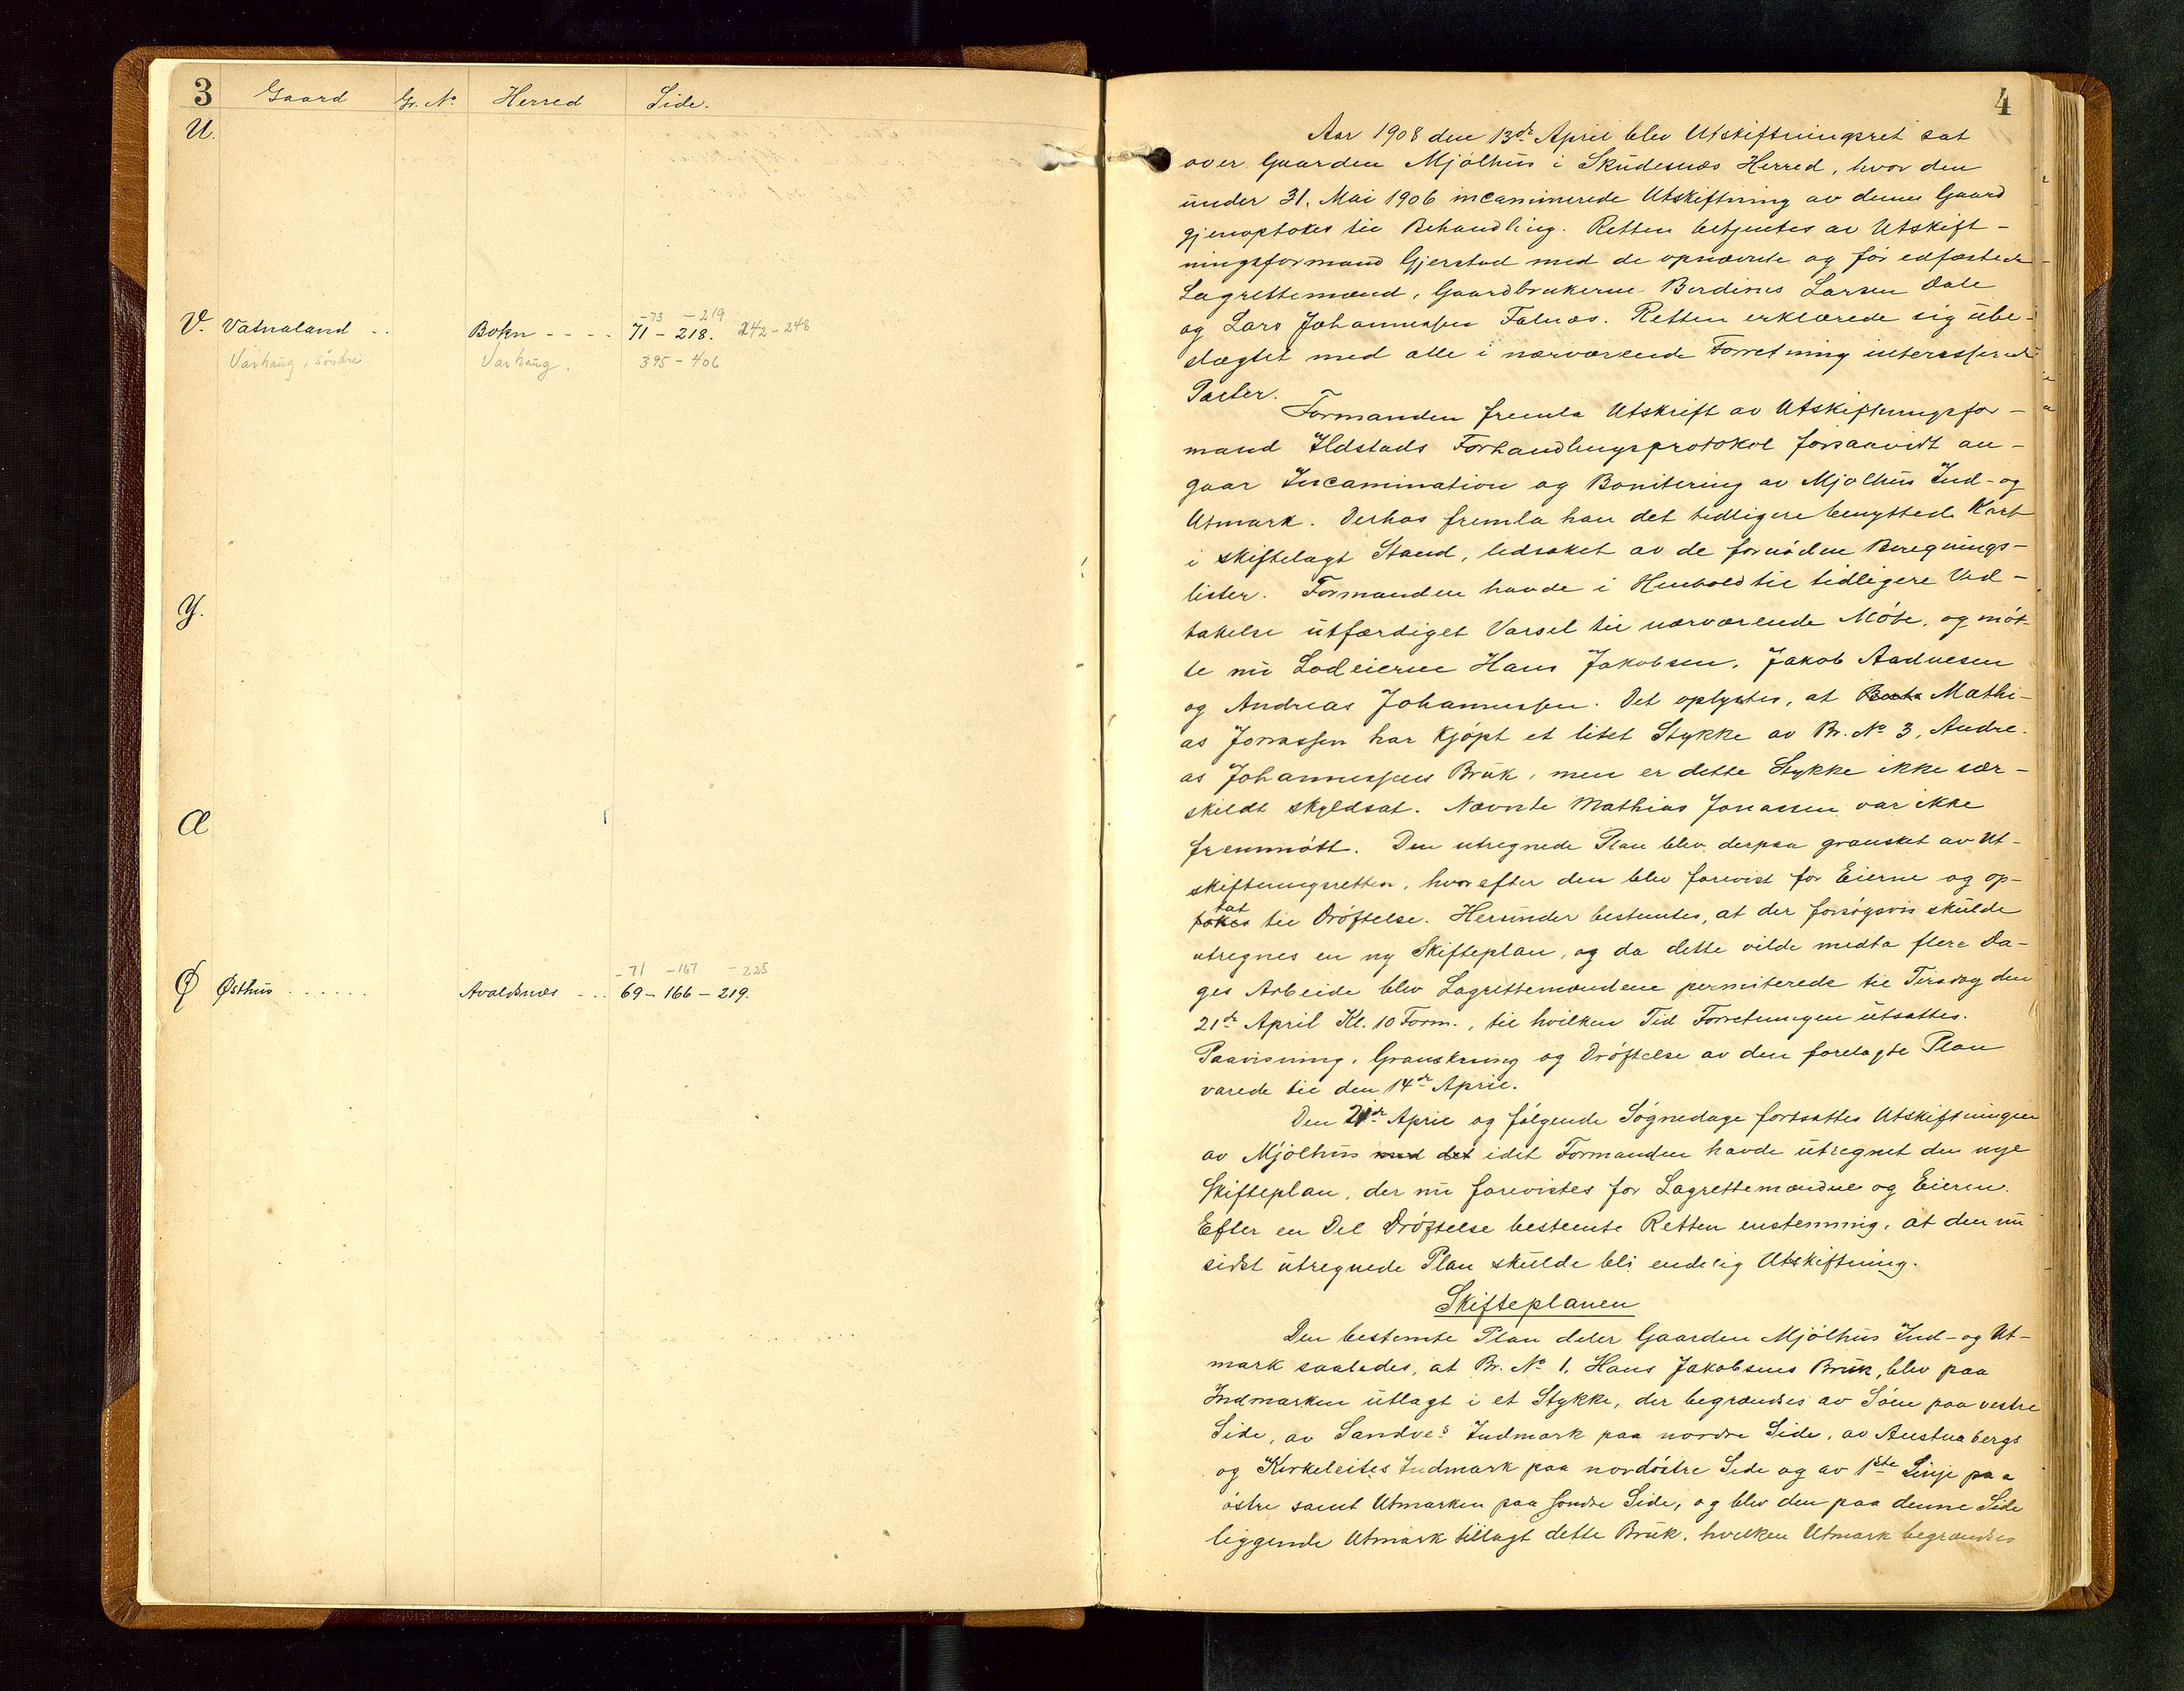 3 Gaard Gr. No Herred Side.
U.
-73 -219
V. Vatnaland .. Bokn - - - . 71 - 218. 242 - 248
Varhaug, söndre Varhaug. 395 - 406
Y.
Æ
-71 -167 -225
Ø Østhus . . . . . . Avaldsnæs - .. 69 - 166 - 219.
4
Aar 1908 den 13de April blev Utskiftningsret sat
over Gaarden Mjølhus i Skudesnæs Herred, hvor den
under 31. Mai 1906 incaminerede Utskiftning av denne Gaard
gjenoptokes til Behandling. Retten betjentes av Utskift-
ningsformand Gjerstad med de opnævnte og før edfæstede
Lagrettemænd, Gaardbrukerne Berdines Larsen Dale
og Lars Johannessen Falnæs. Retten erklærede sig ube-
slægtet med alle i nærværende Forretning interesserede
Parter.
Formanden fremla Utskrift av Utskiftningsfor-
mand Ildstads Forhandlingsprotokol forsaavidt an-
gaar Incamination og Bonitering av Mjølhus Ind- og
Utmark. Derhos fremla han det tidligere benyttede Kart
i skiftelagt Stand, ledsaket av de fornødne Beregnings-
lister. Formanden havde i Henhold til tidligere Ved-
takelse utfærdiget Varsel til nærværende Møte, og møt-
te nu Lodeierne Hans Jakobsen, Jakob Aadnesen
og Andreas Johannessen. Det oplystes, at Mathi-
as Jonassen har kjøpt et litet Stykke av Br. No 3, Andre-
as Johannessens Bruk, men er dette Stykke ikke sær-
skildt skyldsat. Nævnte Mathias Jonassen var ikke
fremmøtt. Den utregnede Plan blev derpaa gransket av Ut-
skiftningsretten, hvorefter den blev forevist for Eierne og op-
tat
tokes til Drøftelse. Herunder bestemtes, at der forsøgsvis skulde
utregnes en ny Skifteplan, og da dette vilde medta flere Da-
ges Arbeide blev Lagrettemændene permiterede til Tirsdag den
21de April Kl. 10 Form., til hvilken Tid Forretningen utsattes.
Paavisning, Granskning og Drøftelse av den forelagte Plan
varede til den 14de April.
Den 21de April og følgende Søgnedage fortsattes Utskiftningen
av Mjølhus med det idet Formanden havde utregnet den nye
Skifteplan, der nu forevistes for Lagrettemændene og Eierne.
Efter en Del Drøftelse bestemte Retten enstemmig, at den nu
sidst utregnede Plan skulde bli endelig Utskiftning.
Skifteplanen
Den bestemte Plan deler Gaarden Mjølhus Ind- og Ut-
mark saaledes, at Br. No 1, Hans Jakobsens Bruk, blev paa
Indmarken utlagt i et Stykke, der begrændses av Søen paa vestre
Side, av Sandves Indmark paa nordre Side, av Austnabergs
og Kirkeleites Indmark paa nordøstre Side og av 1ste Linje paa
østre samt Utmarken paa søndre Side, og blev den paa denne Side
liggende Utmark tillagt dette Bruk, hvilken Utmark begrændses